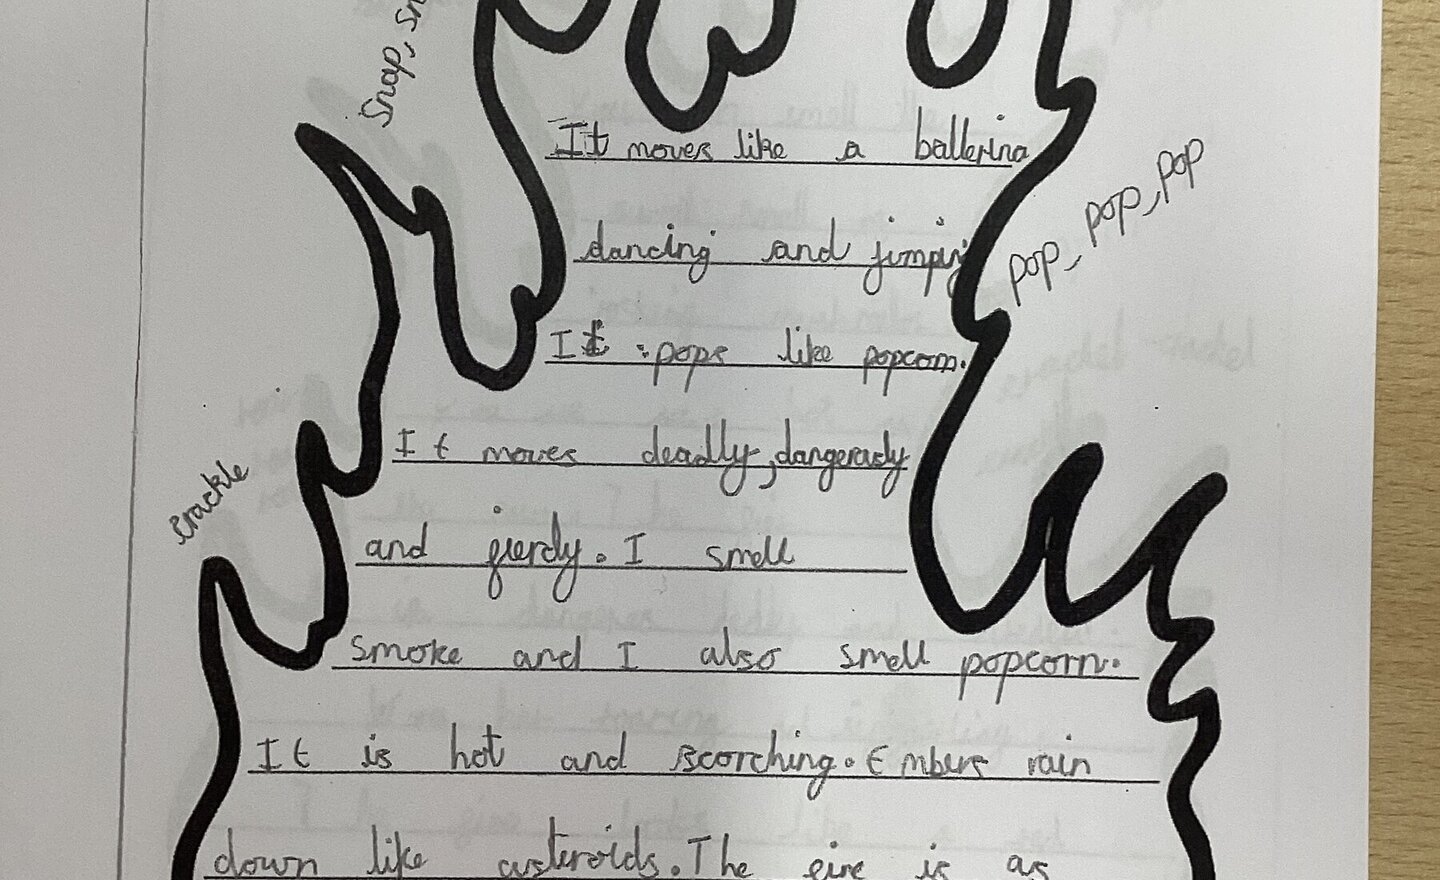 Snap,
It moves like a ballerina
dancing and jumping
pop, pop, pop
It pops like popcorn.
It moves deadly, dangerously
crackle
and fiercly. I smell
smoke and I also smell popcorn.
It is hot and scorching. Embers rain
down like asteroids. The fire is as